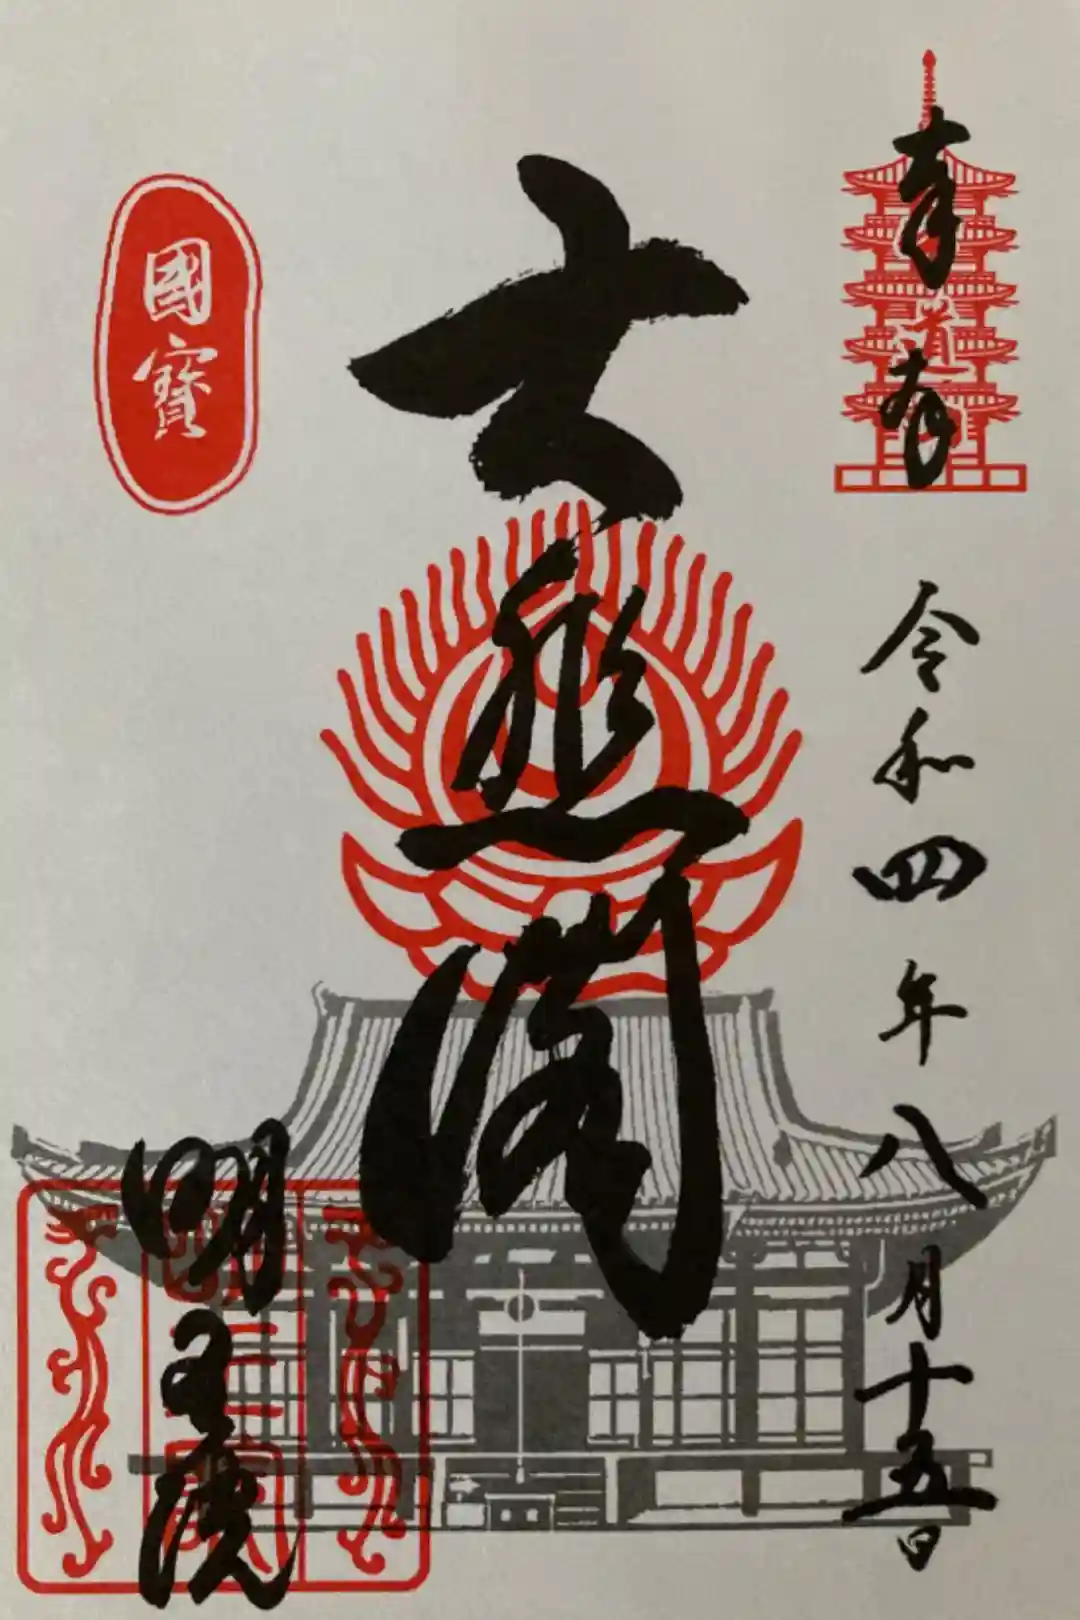 奉拝
令和四年八月十五日
大悲閣
明王院
國寶